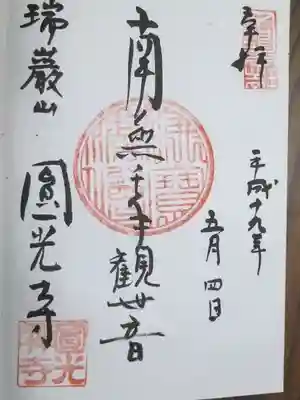 奉拝
平成十九年
五月四日
南無千手観世音
瑞巌山
圓光寺
圓光
禅寺